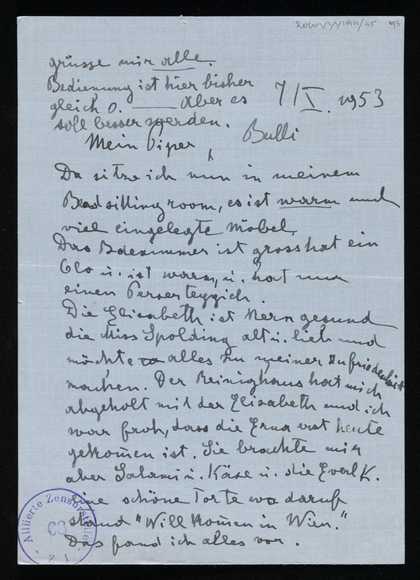 grüsse mir alle.
Bedienung ist hier bisher
gleich 0. — Aber es
soll besser werden.
7/X. 1953
Bulli
Mein Piper,
Da sitze ich nun in meinem
Bedsittingroom, es ist warm und
viel eingelegte Möbel,
Das Badezimmer ist gross hat ein
Clo u. ist warm, u. hat nur
einen Perserteppich.
Die Elisabeth ist kerngesund
die Miss Spolding alt u. lieb und
möchte alles zu meiner Zufriedenheit
machen. Der Reininghaus hat mich
abgeholt mit der Elisabeth und ich
war froh, dass die Erna erst heute
gekommen ist. Sie brachte mir
aber Salami u. Käse u. die K.
eine schöne Torte wo darauf
stand "Willkommen in Wien."
Das fand ich alles vor.
Alliierte Zensurstelle